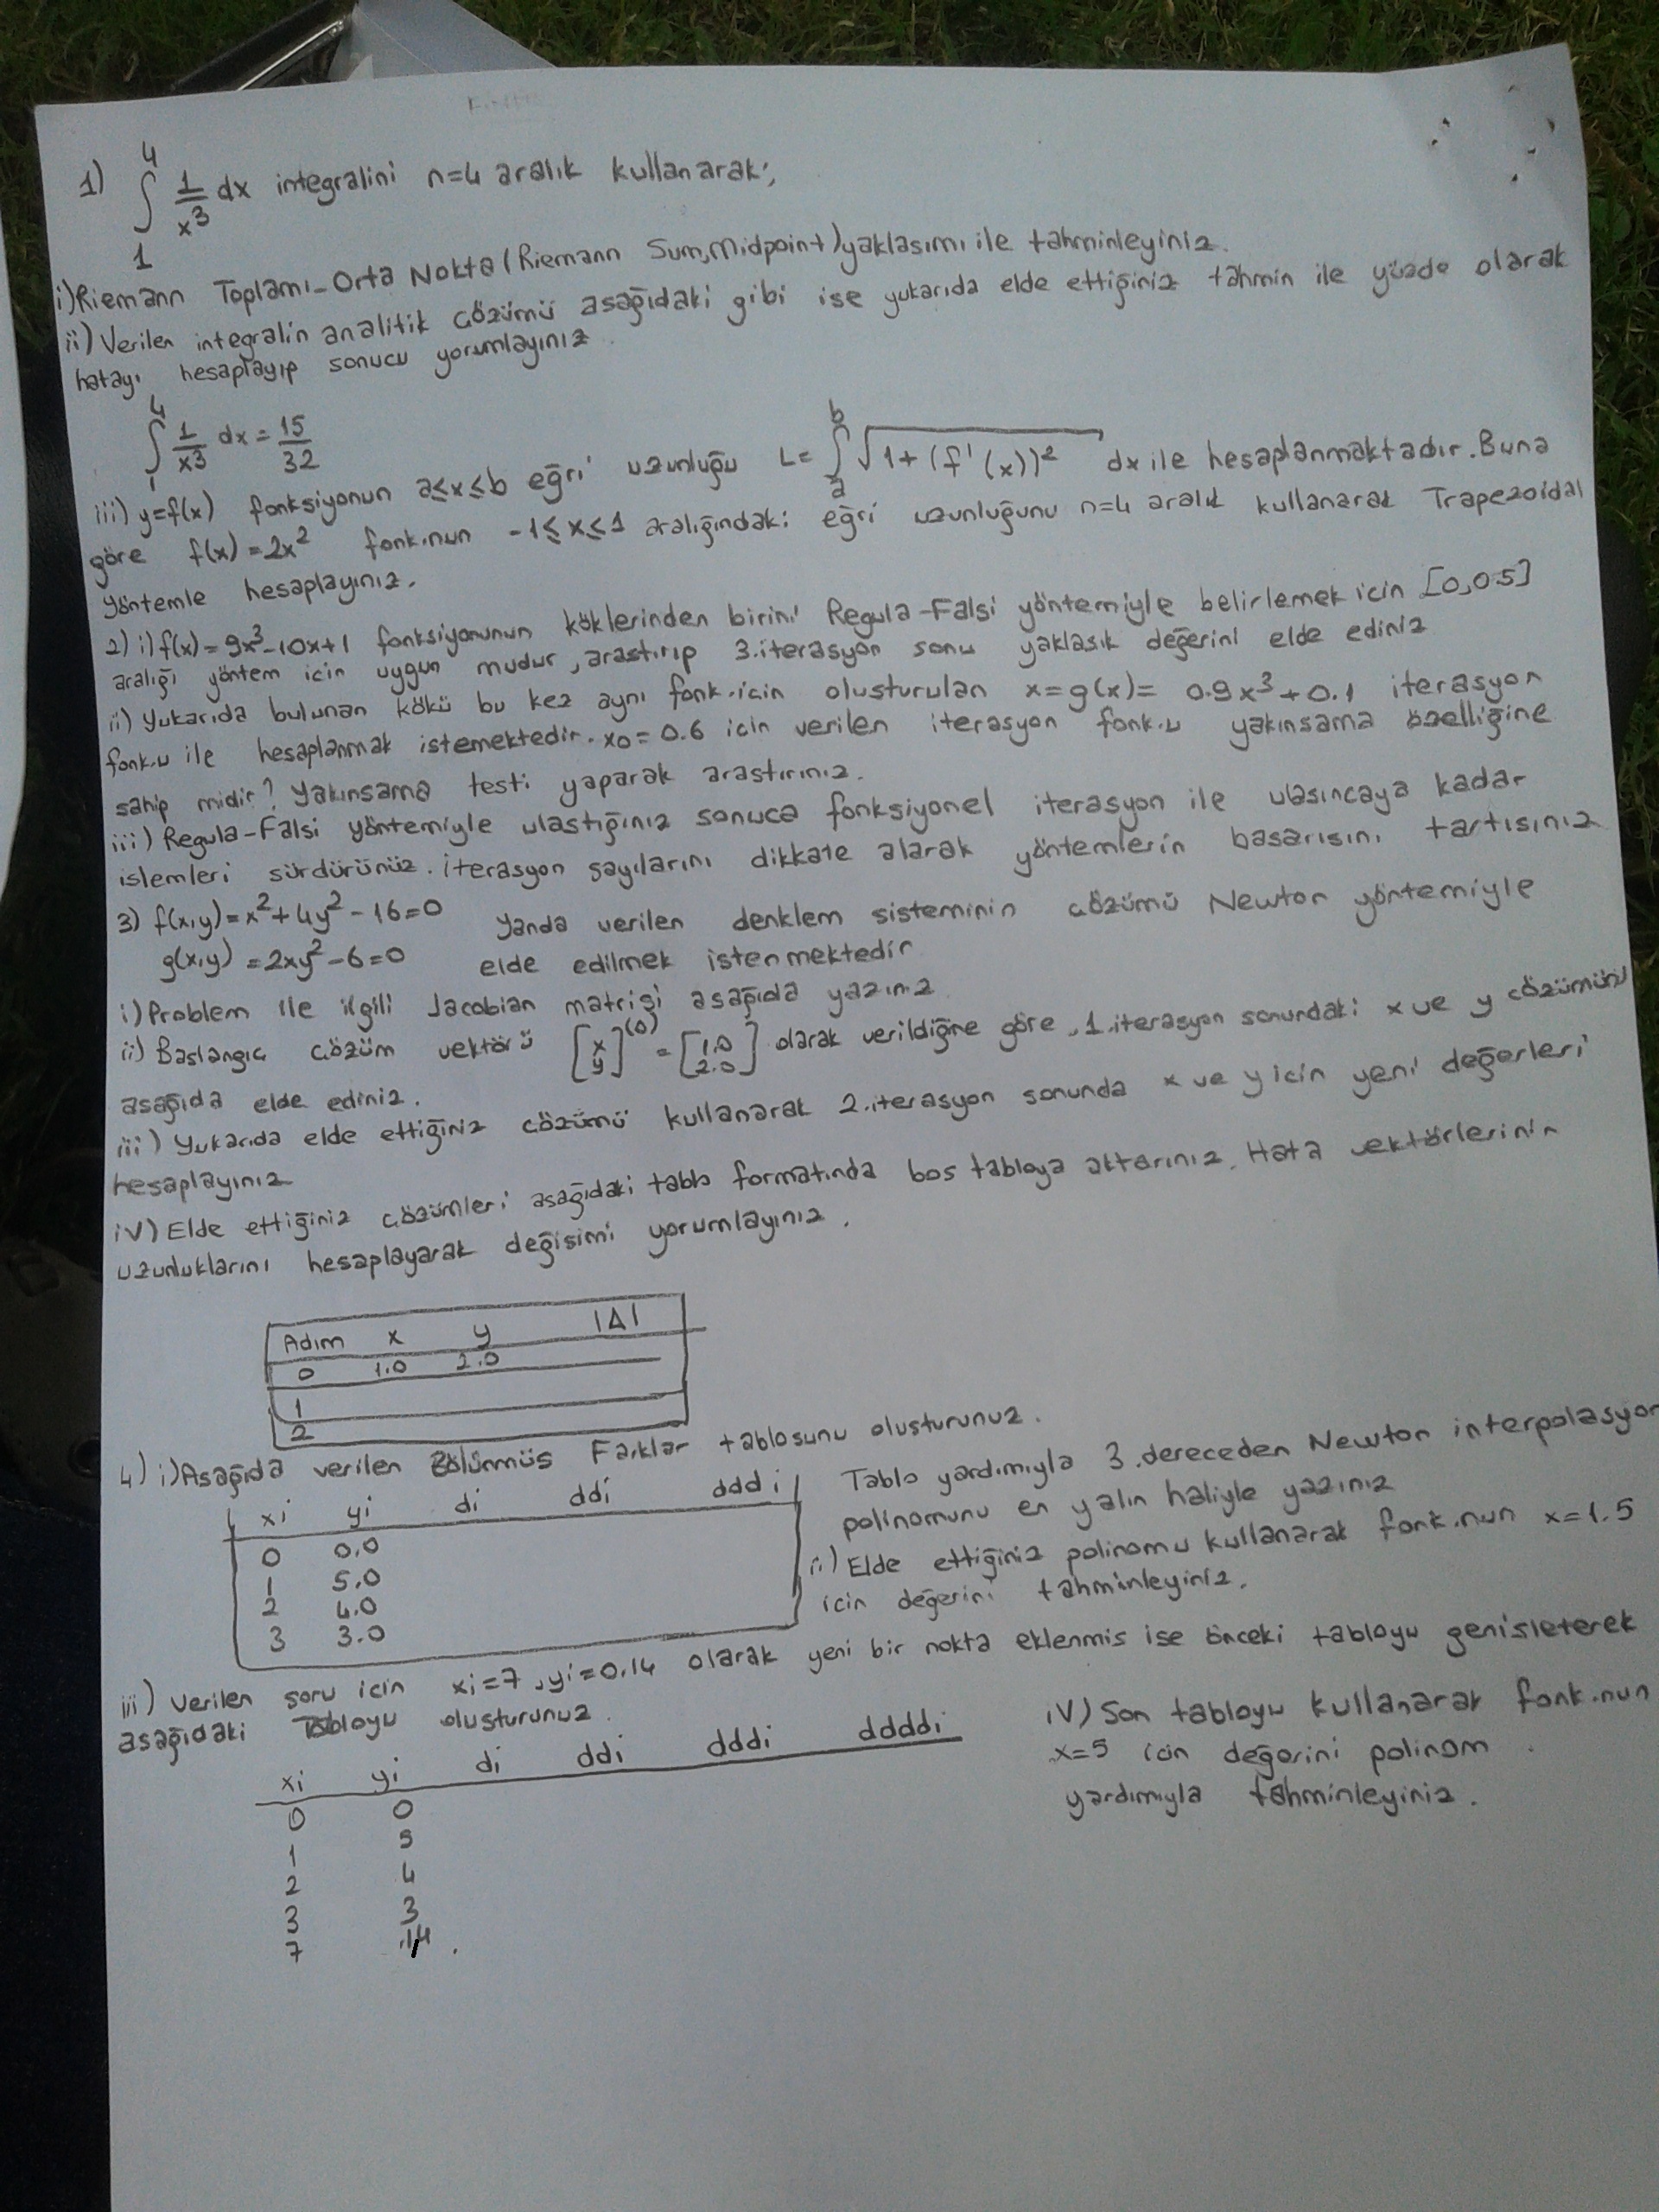 1) ∫₁⁴ 1/x³ dx integralini n=4 aralık kullanarak;
i) Riemann Toplamı-Orta Nokta (Riemann Sum, Midpoint) yaklasımı ile tahminleyiniz.
ii) Verilen integralin analitik çözümü asağıdaki gibi ise yukarıda elde ettiğiniz tahmin ile yüzde olarak
hatayı hesaplayıp sonucu yorumlayınız.
∫₁⁴ 1/x³ dx = 15/32
iii) y=f(x) fonksiyonun a≤x≤b eğri uzunluğu L= ∫ₐᵇ √(1+(f'(x))²) dx ile hesaplanmaktadır. Buna
göre f(x)=2x² fonk.nun -1≤x≤1 aralığındaki eğri uzunluğunu n=4 aralık kullanarak Trapezoidal
yöntemle hesaplayınız.
2) i) f(x)=9x³-10x+1 fonksiyonunun köklerinden birini Regula-Falsi yöntemiyle belirlemek icin [0,0.5]
aralığı yöntem icin uygun mudur, arastırıp 3.iterasyon sonu yaklasık değerini elde ediniz
ii) Yukarıda bulunan kökü bu kez aynı fonk.icin olusturulan x=g(x)= 0.9x³+0.1 iterasyon
fonk.u ile hesaplanmak istemektedir. x0=0.6 icin verilen iterasyon fonk.u yakınsama özelliğine
sahip midir? Yakınsama testi yaparak arastırınız.
iii) Regula-Falsi yöntemiyle ulastığınız sonuca fonksiyonel iterasyon ile ulasıncaya kadar
islemleri sürdürünüz. iterasyon sayılarını dikkate alarak yöntemlerin basarısını tartısınız
3) f(x,y)=x²+4y²-16=0 Yanda verilen denklem sisteminin çözümü Newton yöntemiyle
g(x,y)=2xy²-6=0 elde edilmek istenmektedir
i) Problem ile ilgili Jacobian matrisi asağıda yazınız
ii) Baslangıc çözüm vektörü [x y]⁽⁰⁾ = [1.0 2.0] olarak verildiğine göre, 1.iterasyon sonundaki x ve y çözümünü
asağıda elde ediniz.
iii) Yukarıda elde ettiğiniz çözümü kullanarak 2.iterasyon sonunda x ve y icin yeni değerleri
hesaplayınız
iV) Elde ettiğiniz çözümleri asağıdaki tablo formatında bos tabloya aktarınız. Hata vektörlerinin
uzunluklarını hesaplayarak değisimi yorumlayınız.
Adım x y |Δ|
0 1.0 2.0
1
2
4) i) Asağıda verilen Bölünmüs Farklar tablosunu olusturunuz.
Tablo yardımıyla 3.dereceden Newton interpolasyon
polinomunu en yalın haliyle yazınız
xi yi di ddi dddi
0 0.0
1 5.0
2 4.0
3 3.0
ii) Elde ettiğiniz polinomu kullanarak fonk.nun x=1.5
icin değerini tahminleyiniz.
iii) Verilen soru icin xi=7, yi=0.14 olarak yeni bir nokta eklenmis ise önceki tabloyu genisleterek
asağıdaki Tabloyu olusturunuz.
xi yi di ddi dddi ddddi
0 0
1 5
2 4
3 3
7 .14
iV) Son tabloyu kullanarak fonk.nun
x=5 icin değerini polinom
yardımıyla tahminleyiniz.